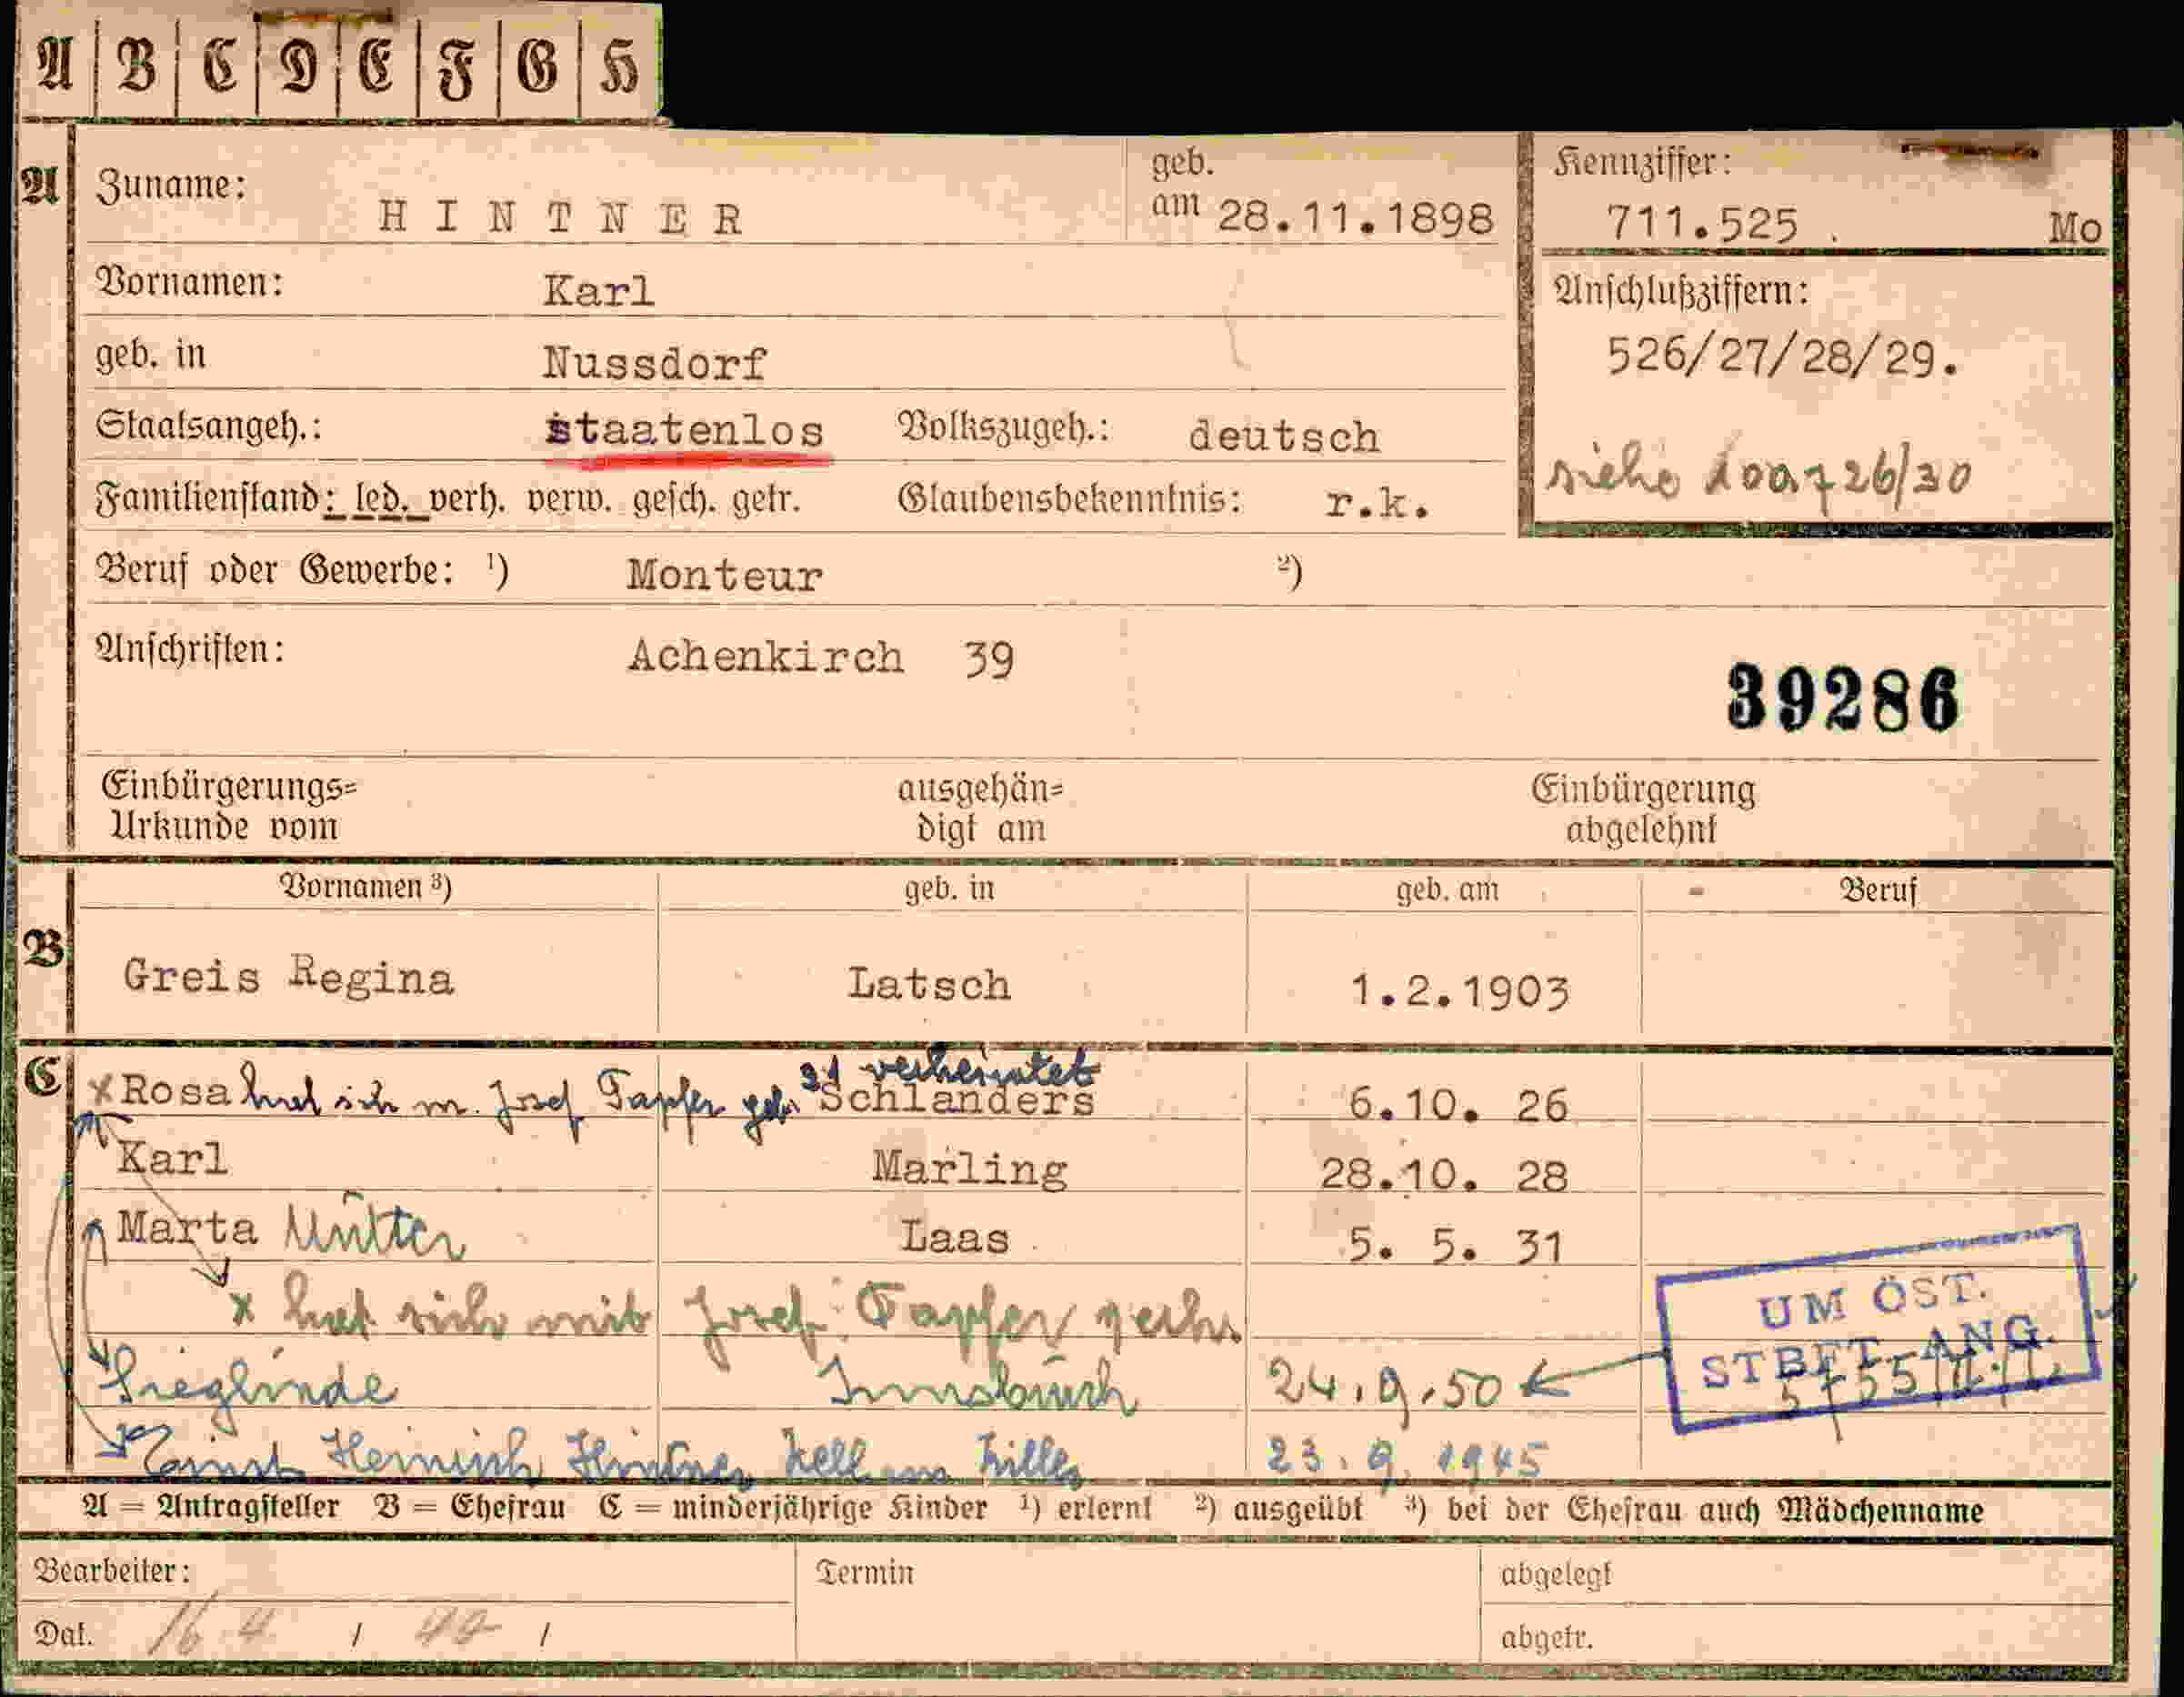 A B C D E F G H
A Zuname: HINTNER geb. am 28.11.1898
Kennziffer: 711.525 . Mo
Vornamen: Karl
Anschlußziffern:
526/27/28/29.
geb. in Nussdorf
Staatsangeh.: staatenlos Volkszugeh.: deutsch
siehe 26/30
Familienstand: led. verh. verw. gesch. getr. Glaubensbekenntnis: r.k.
Beruf oder Gewerbe: ¹) Monteur ²)
Anschriften: Achenkirch 39
39286
Einbürgerungs= Urkunde vom ausgehän= digt am Einbürgerung abgelehnt
Vornamen ³) geb. in geb. am Beruf
B Greis Regina Latsch 1.2.1903
verheiratet
C x Rosa hat sich m. Josef Tapfer geb. Schlanders 6.10. 26
Karl Marling 28.10. 28
Marta Mutter Laas 5. 5. 31
x hat sich mit Josef Tapfer
UM ÖST.
STBFT. ANG.
Sieglinde Innsbruck 24.9.50
Ernst Heinrich Hintner Zell am Ziller 23.9.1945
A = Antragsteller B = Ehefrau C = minderjährige Kinder ¹) erlernt ²) ausgeübt ³) bei der Ehefrau auch Mädchenname
Bearbeiter: Termin abgelegt
Dat. 16 4 / / abgetr.